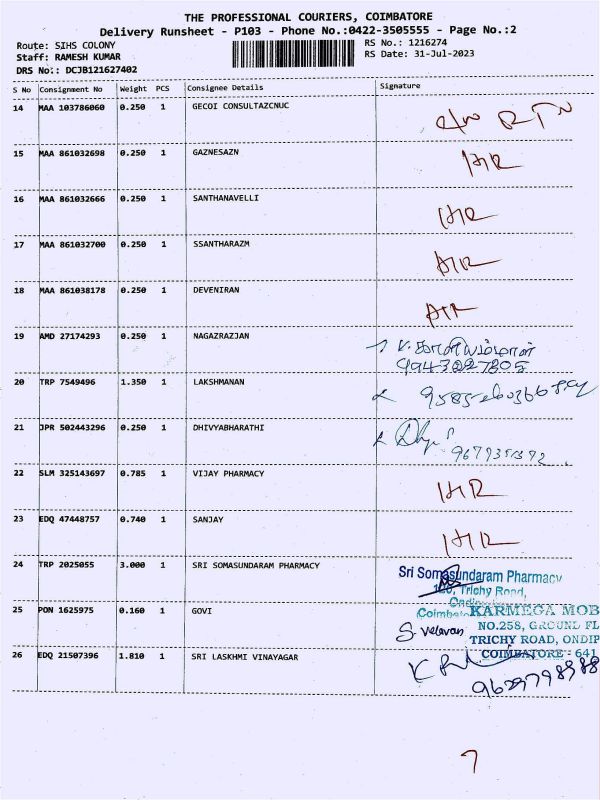 THE PROFESSIONAL COURIERS, COIMBATORE
Delivery Runsheet - P103 - Phone No.:0422-3505555 - Page No.:2
Route: SIHS COLONY
RS No.: 1216274
Staff: RAMESH KUMAR
RS Date: 31-Jul-2023
DRS No.: DCJB121627402
S No Consignment No Weight PCS Consignee Details Signature
14 MAA 103786060 0.250 1 GECOI CONSULTAZCNUC
15 MAA 861032698 0.250 1 GAZNESAZN
16 MAA 861032666 0.250 1 SANTHANAVELLI
17 MAA 861032700 0.250 1 SSANTHARAZM
18 MAA 861038178 0.250 1 DEVENIRAN
19 AMD 27174293 0.250 1 NAGAZRAZJAN
20 TRP 7549496 1.350 1 LAKSHMANAN
21 JPR 502443296 0.250 1 DHIVYABHARATHI
22 SLM 325143697 0.785 1 VIJAY PHARMACY
23 EDQ 47448757 0.740 1 SANJAY
24 TRP 2025055 3.000 1 SRI SOMASUNDARAM PHARMACY
Sri Somasundaram Pharmacy
Trichy Road,
25 PON 1625975 0.160 1 GOVI
KARMEGA MOB
NO.258, GROUND FL
S. Velavan
TRICHY ROAD, ONDIP
COIMBATORE - 641
26 EDQ 21507396 1.810 1 SRI LASKHMI VINAYAGAR
7